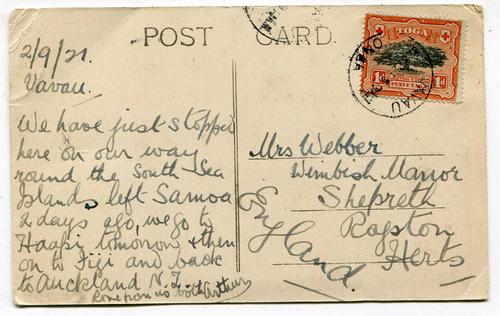 POST CARD
TOGA
1d 1d
2/9/21.
Vavau.
We have just stopped
here on our way
round the South Sea
Islands, left Samoa
2 days ago, we go to
Haapi tomorrow & then
on to Fiji and back
to Auckland N.Z.
Love from us both Arthur
Mrs Webber
Wimbish Manor
Shepreth
Royston
Herts
England.